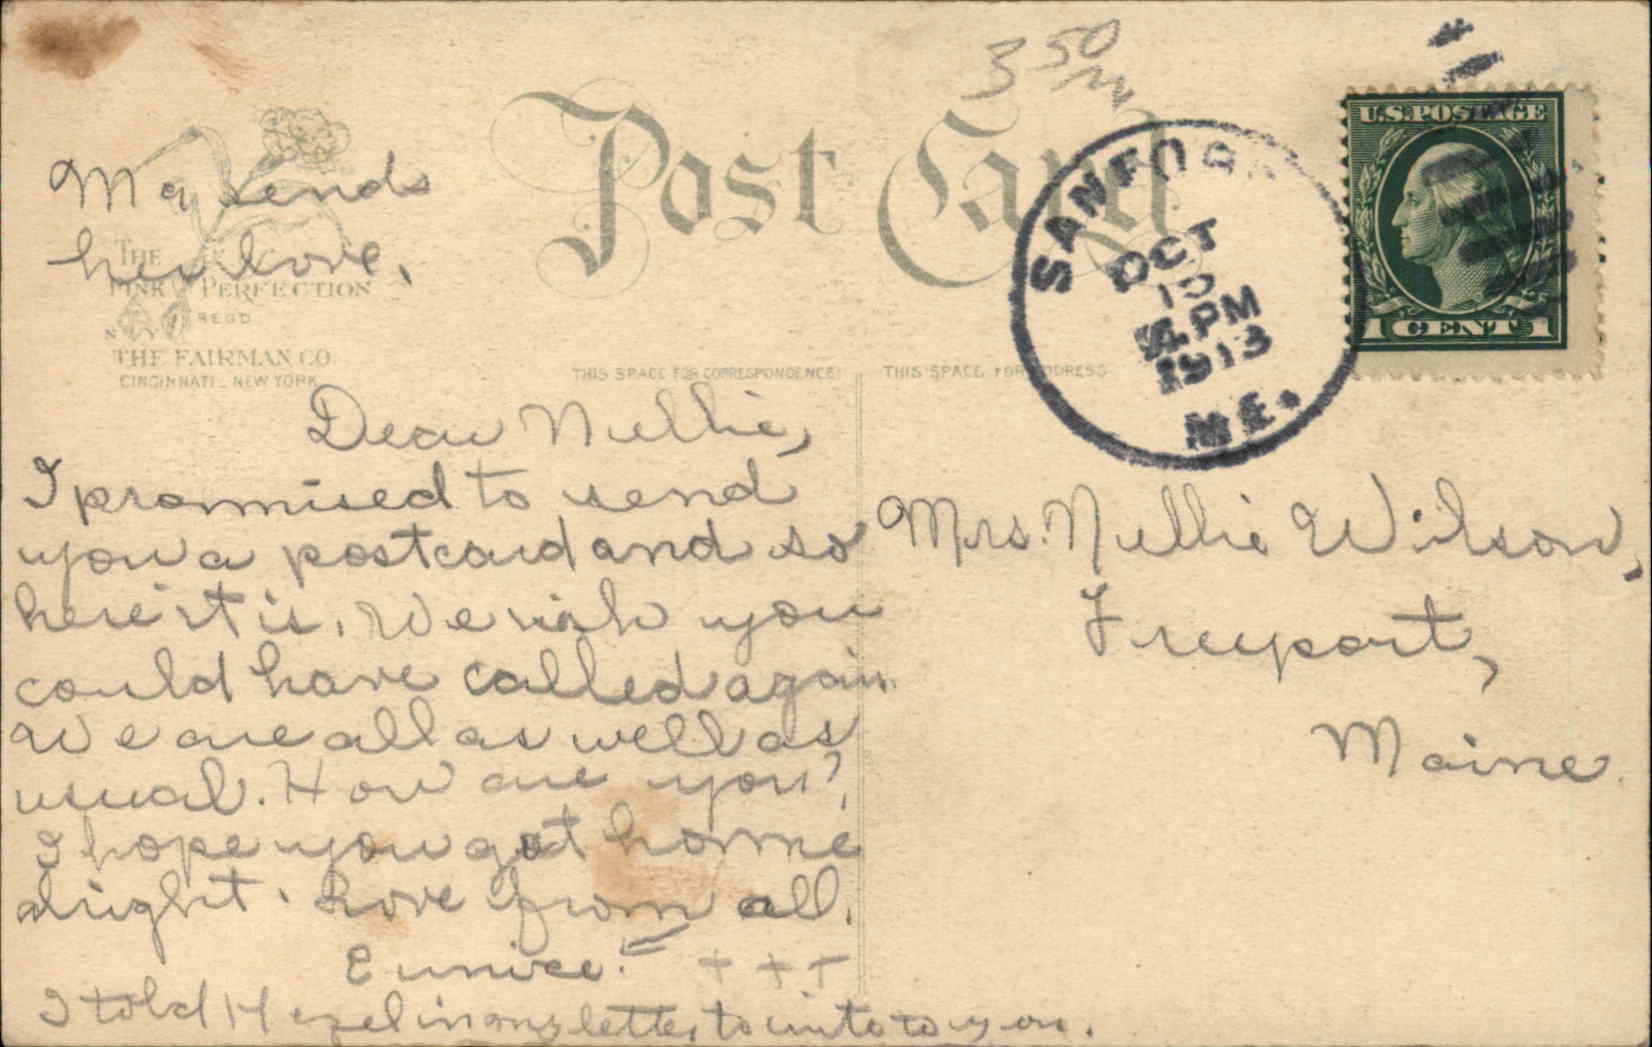 3 50
Post Card
Ma sends
her love.
THE
PINK PERFECTION
REG'D
N Y
THE FAIRMAN CO
CINCINNATI - NEW YORK
SANFOR
OCT
4 PM
1913
ME.
U.S. POSTAGE
1 CENT 1
THIS SPACE FOR CORRESPONDENCE
THIS SPACE FOR ADDRESS
Dear Nellie,
I promised to send
you a postcard and so
here it is. We wish you
could have called again.
We are all as well as
usual. How are you?
I hope you got home
alright. Love from all.
Eunice. + + +
I told Hazel in my letter to write to you.
Mrs. Nellie Wilson,
Freeport,
Maine.